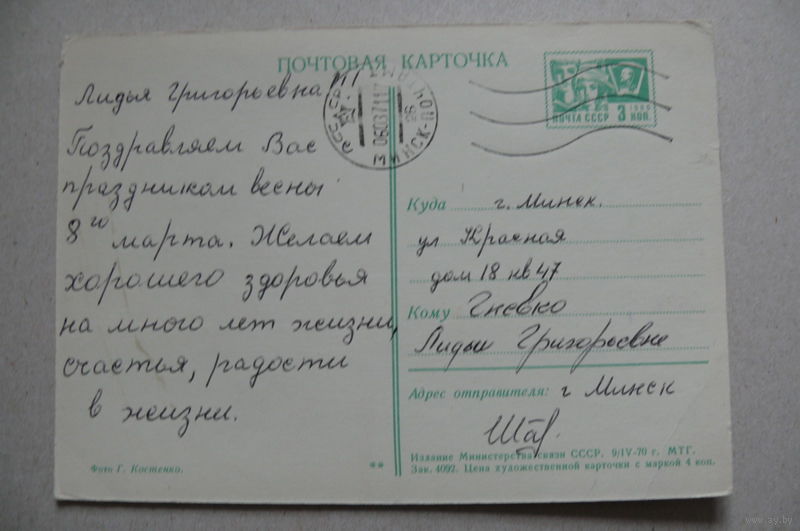 ПОЧТОВАЯ КАРТОЧКА
Лидья Григорьевна!
Поздравляем Вас
праздником весны
8го марта. Желаем
хорошего здоровья
на много лет жизни,
счастья, радости
в жизни.
Фото Г. Костенко.
**
МИНСК
060371
26
1966
ПОЧТА СССР 3 КОП.
Куда г. Минск.
ул Красная
дом 18 кв 47
Кому Гневко
Лидьи Григорьевне
Адрес отправителя: г Минск
Издание Министерства связи СССР. 9/IV-70 г. МТГ.
Зак. 4092. Цена художественной карточки с маркой 4 коп.
www.ay.by